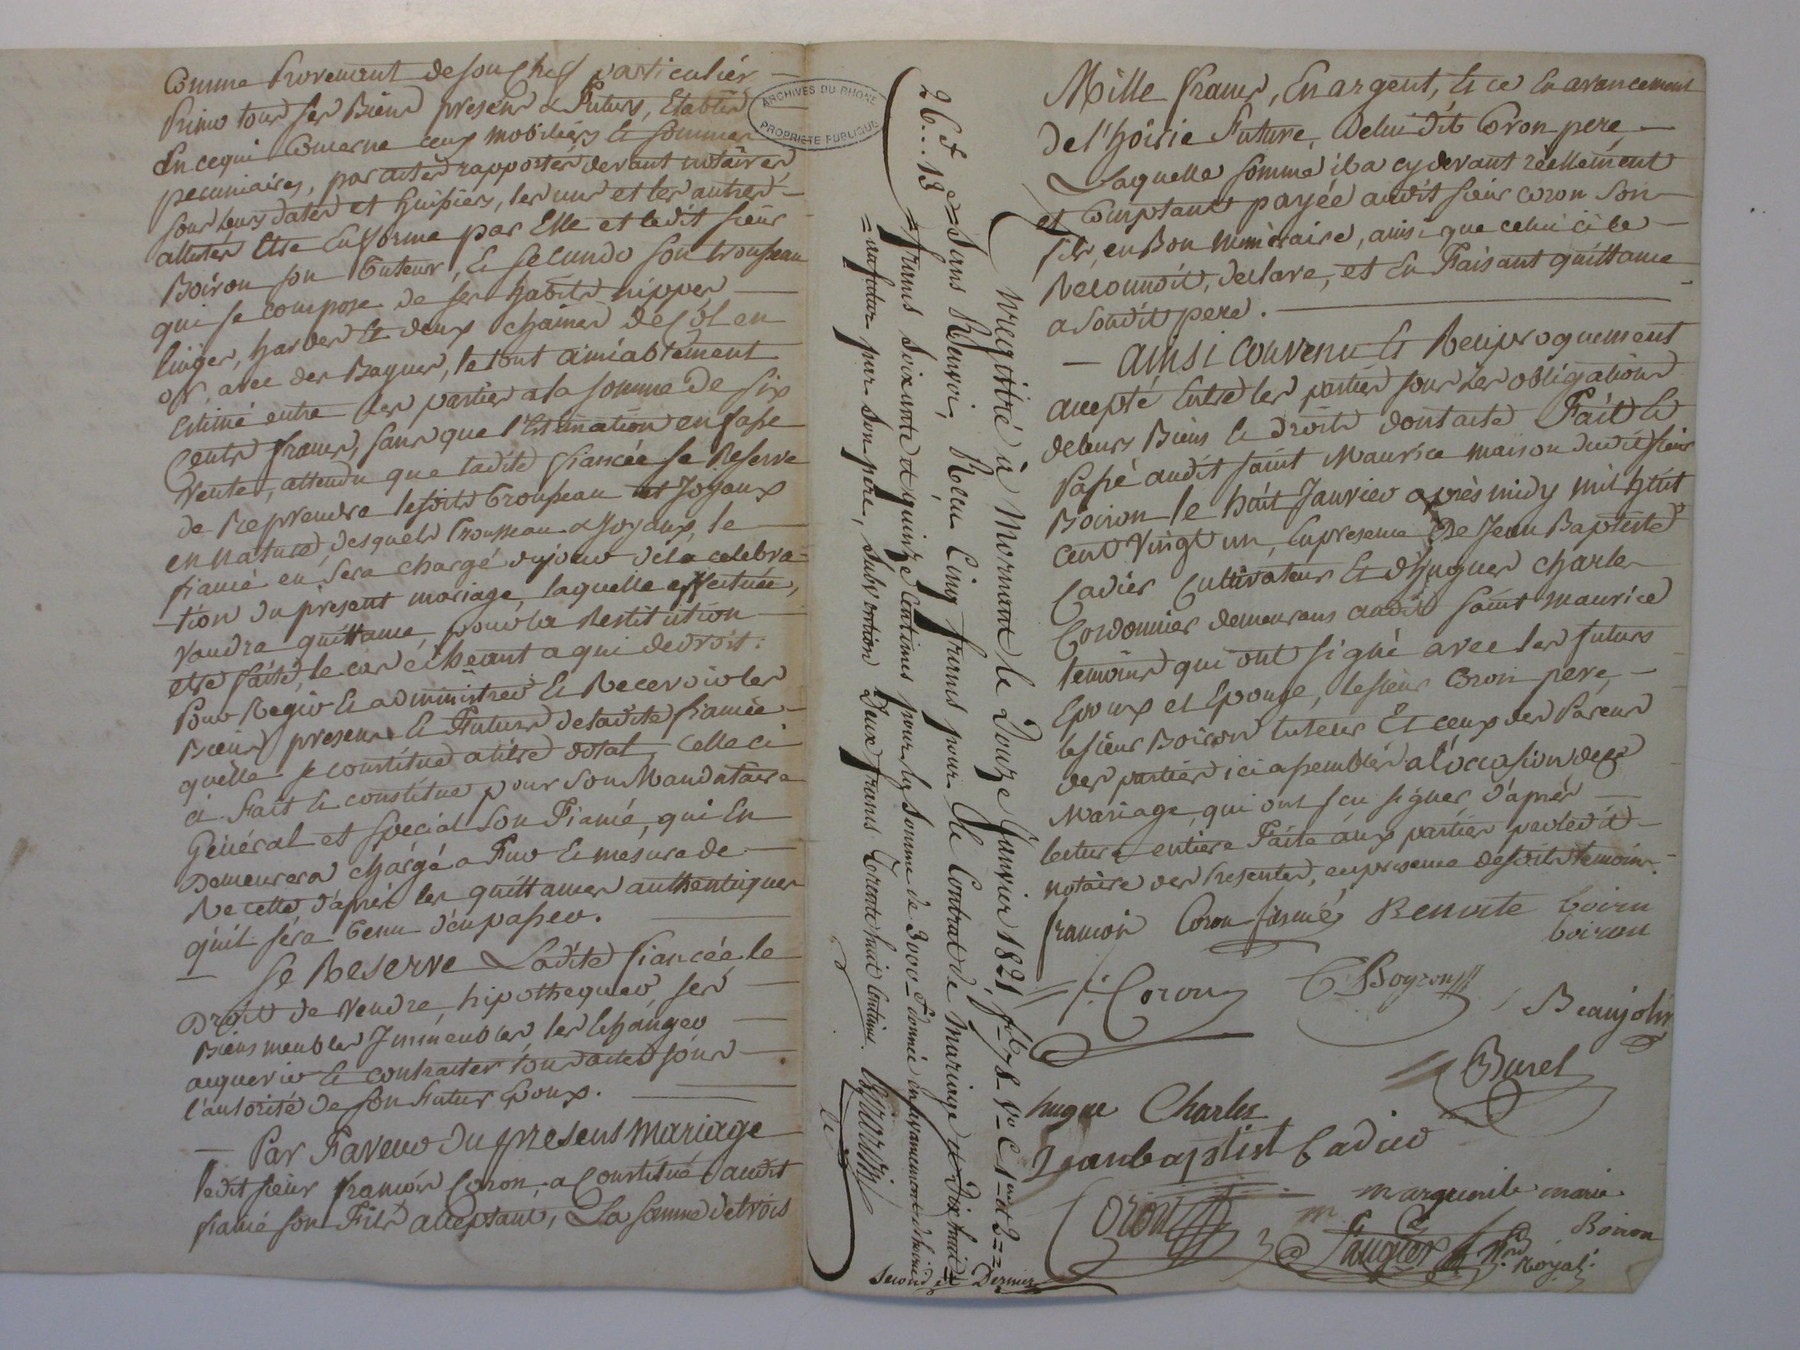 Comme Provenant de son Cheff particuliér
Primo tous ses Biens presens & Futurs, Etablis
En cequi Concerne ceux mobiliérs & sommes
pecuniaires, par actes rapportés devant notâires
sous leurs dates et huissiérs, les uns et les autres
attestés Etre En forme par Elle et ledit sieur
Boiron son tuteur, & secundo son trousseau
qui se compose de ses habits nippes
linges, hardes Et deux chaines De Côl en
or, avec des Bagues, le tout amiablement
Estimé entre les parties a la somme De six
Cents francs, sans que l'Estimation en fasse
vente, attendu que ladite fiancée se Reserve
de Reprendre lesdits trousseau et Joyaux
en nature, desquels trousseau & Joyaux, le
fiancé en sera chargé dujour déla celebra=
tion du présent mariage, laquelle effectuée,
vaudra quittance, pour la Restitution
etre faite, le cas échéant a qui dedroit.
Pour Regir & administrer & Recevoir les
Biens presens & Futurs deladite fiancée
quelle se constitue atitre dotal, Celle ci
a Fait & constitue pour son Mandataire
Général et spécial son Fiancé, qui En
Demeurera chargé a Fur & mesure de
Recette d'aprés les quittances authentiques
qu'il séra tenu d'enpasser.
Se Reserve Ladite fiancée le
Droit de vendre, hipothequer, ses
Biens meubles Immeubles, les Echanger
acquerir & contracter tous actes sous
l'autorité de son Futur Epoux.
Par Faveur du presens mariage
ledit sieur françois Coron, a Constitué audit
fiancé son Fils acceptant, La somme detrois
ARCHIVES DU RHONE
PROPRIETE PUBLIQUE
Enregistré à Mornant le Douze Janvier 1821 fo 78 Vo C 1re et 2 =
= Sans Renvoi, Reçu Cinq francs pour le Contrat de mariage et Dix huit
26.. 13
= francs soixante et quinze Centimes pour la somme de 3000 f donnée en avancement d'hoirie
= au futur par son père, Subvention Deux francs trente huit Centimes.
Second et Dernier
Mille francs, En argent, & ce En avancement
de l'hoirie Future, Deludit Coron pere
Laquelle somme il a cy devant réellement
et Comptant payée audit sieur coron son
fils, en Bon numéraire, ainsi que celui ci le
Reconnoit, declare, et En Faisant quittance
a Sondit pere.
Ainsi Convenu & Reciproquement
accepté Entre les parties sous les obligations
deleurs Biens & Droits dont acte Fait &
Passé audit saint Maurice maison dudit sieur
Boiron le huit Janvier après midy mil huit
cent vingt un, En presence De Jean Baptiste
Cadier Cultivateur Et d'hugues charle
Cordonnier demeurans audit saint maurice
témoins qui ont signé avec les futurs
Epoux et Epouse, lesieur Coron pere,
lesieur Boiron tuteur Et ceux des Parens
des parties ici assemblés a l'occasion de ce
Mariage, qui ont seu signer d'aprés
lecture entiere Faite aux parties par ledit
notaire des Presentes, en presence desdits temoins.
françois Coron fiancé Benoite boirn
boiron
Coron Boyron Beaujolin
Burel
hugue Charles
Jean baptist Cadier
Coron marguerite marie
Boiron
Laugier Nre Royal.